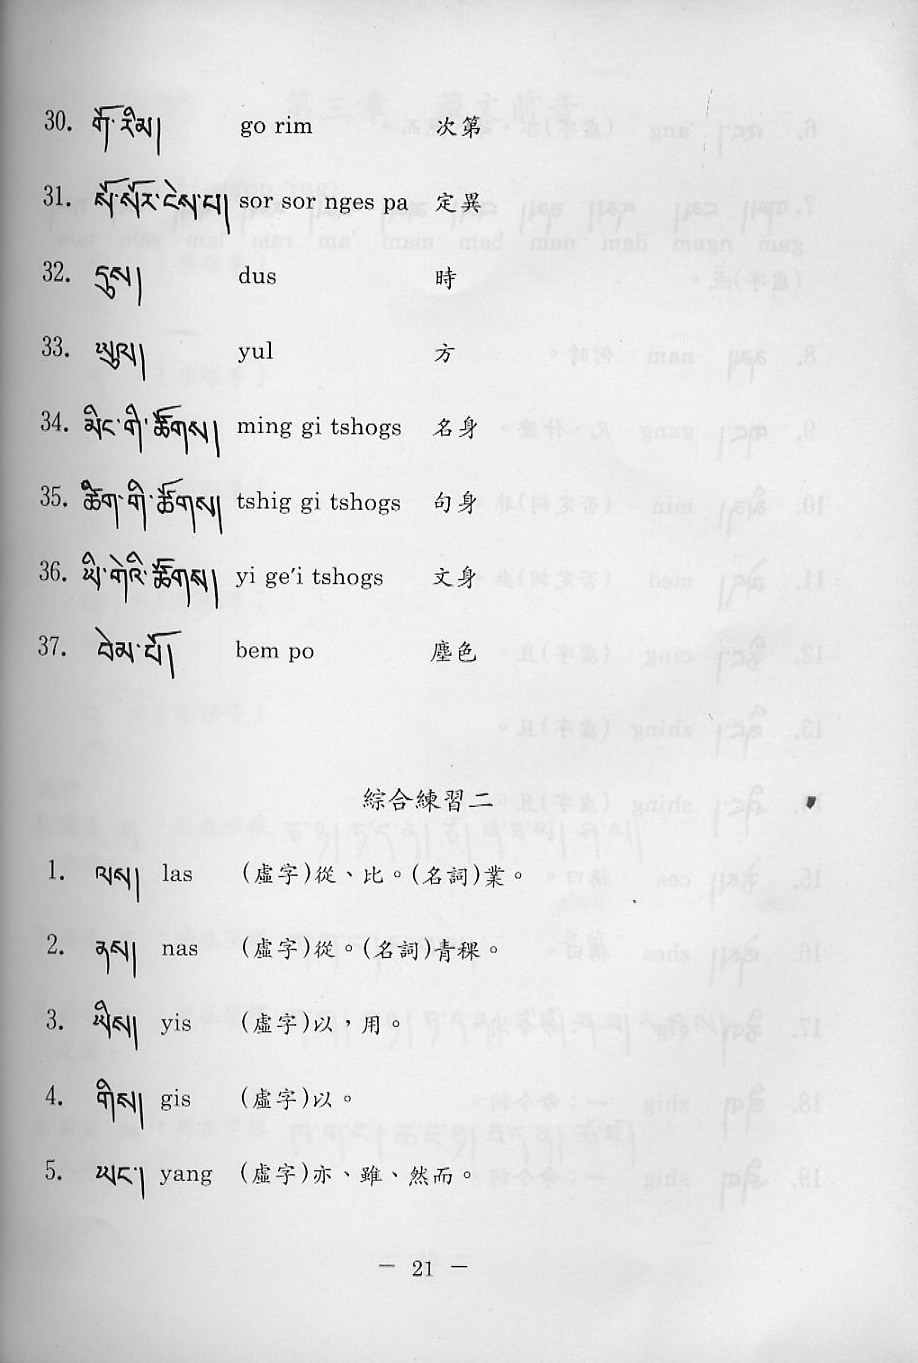 30. གོ་རིམ། go rim 次第
31. སོ་སོར་ངེས་པ། sor sor nges pa 定異
32. དུས། dus 時
33. ཡུལ། yul 方
34. མིང་གི་ཚོགས། ming gi tshogs 名身
35. ཚིག་གི་ཚོགས། tshig gi tshogs 句身
36. ཡི་གེའི་ཚོགས། yi ge'i tshogs 文身
37. བེམ་པོ། bem po 塵色
綜合練習二
1. ལས། las (虛字)從、比。(名詞)業。
2. ནས། nas (虛字)從。(名詞)青稞。
3. ཡིས། yis (虛字)以，用。
4. གིས། gis (虛字)以。
5. ཡང་། yang (虛字)亦、雖、然而。
— 21 —